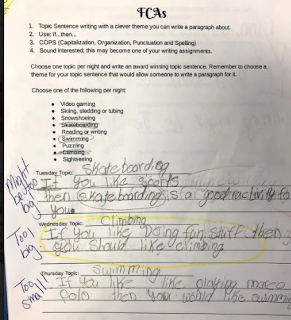 FCAs
1. Topic Sentence writing with a clever theme you can write a paragraph about.
2. Use: If...then...
3. COPS (Capitalization, Organization, Punctuation and Spelling)
4. Sound interested; this may become one of your writing assignments.
Choose one topic per night and write an award winning topic sentence. Remember to choose a
theme for your topic sentence that would allow someone to write a paragraph for it.
Choose one of the following per night:
Video gaming
Skiing, sledding or tubing
Snowshoeing
Skateboarding
Reading or writing
Swimming
Puzzling
Climbing
Sightseeing
Tuesday Topic: Skateboarding
Might be too big
If You like sports
then skateboarding is a good activity for
you.
Wednesday Topic: Climbing
Too big
If you like Doing fun stuff then
you should like climbing
Thursday Topic: Swimming
Too small
If you like like playing marco
Polo then you would like swimming